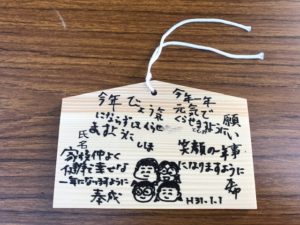 今年一年
元気で
くらせますように
今年びょう気
にならずにくらせ
ますように
願い
氏名
笑顔の一年
になりますように
家族仲よく
健康で幸せな
一年になりますように
H31.1.1